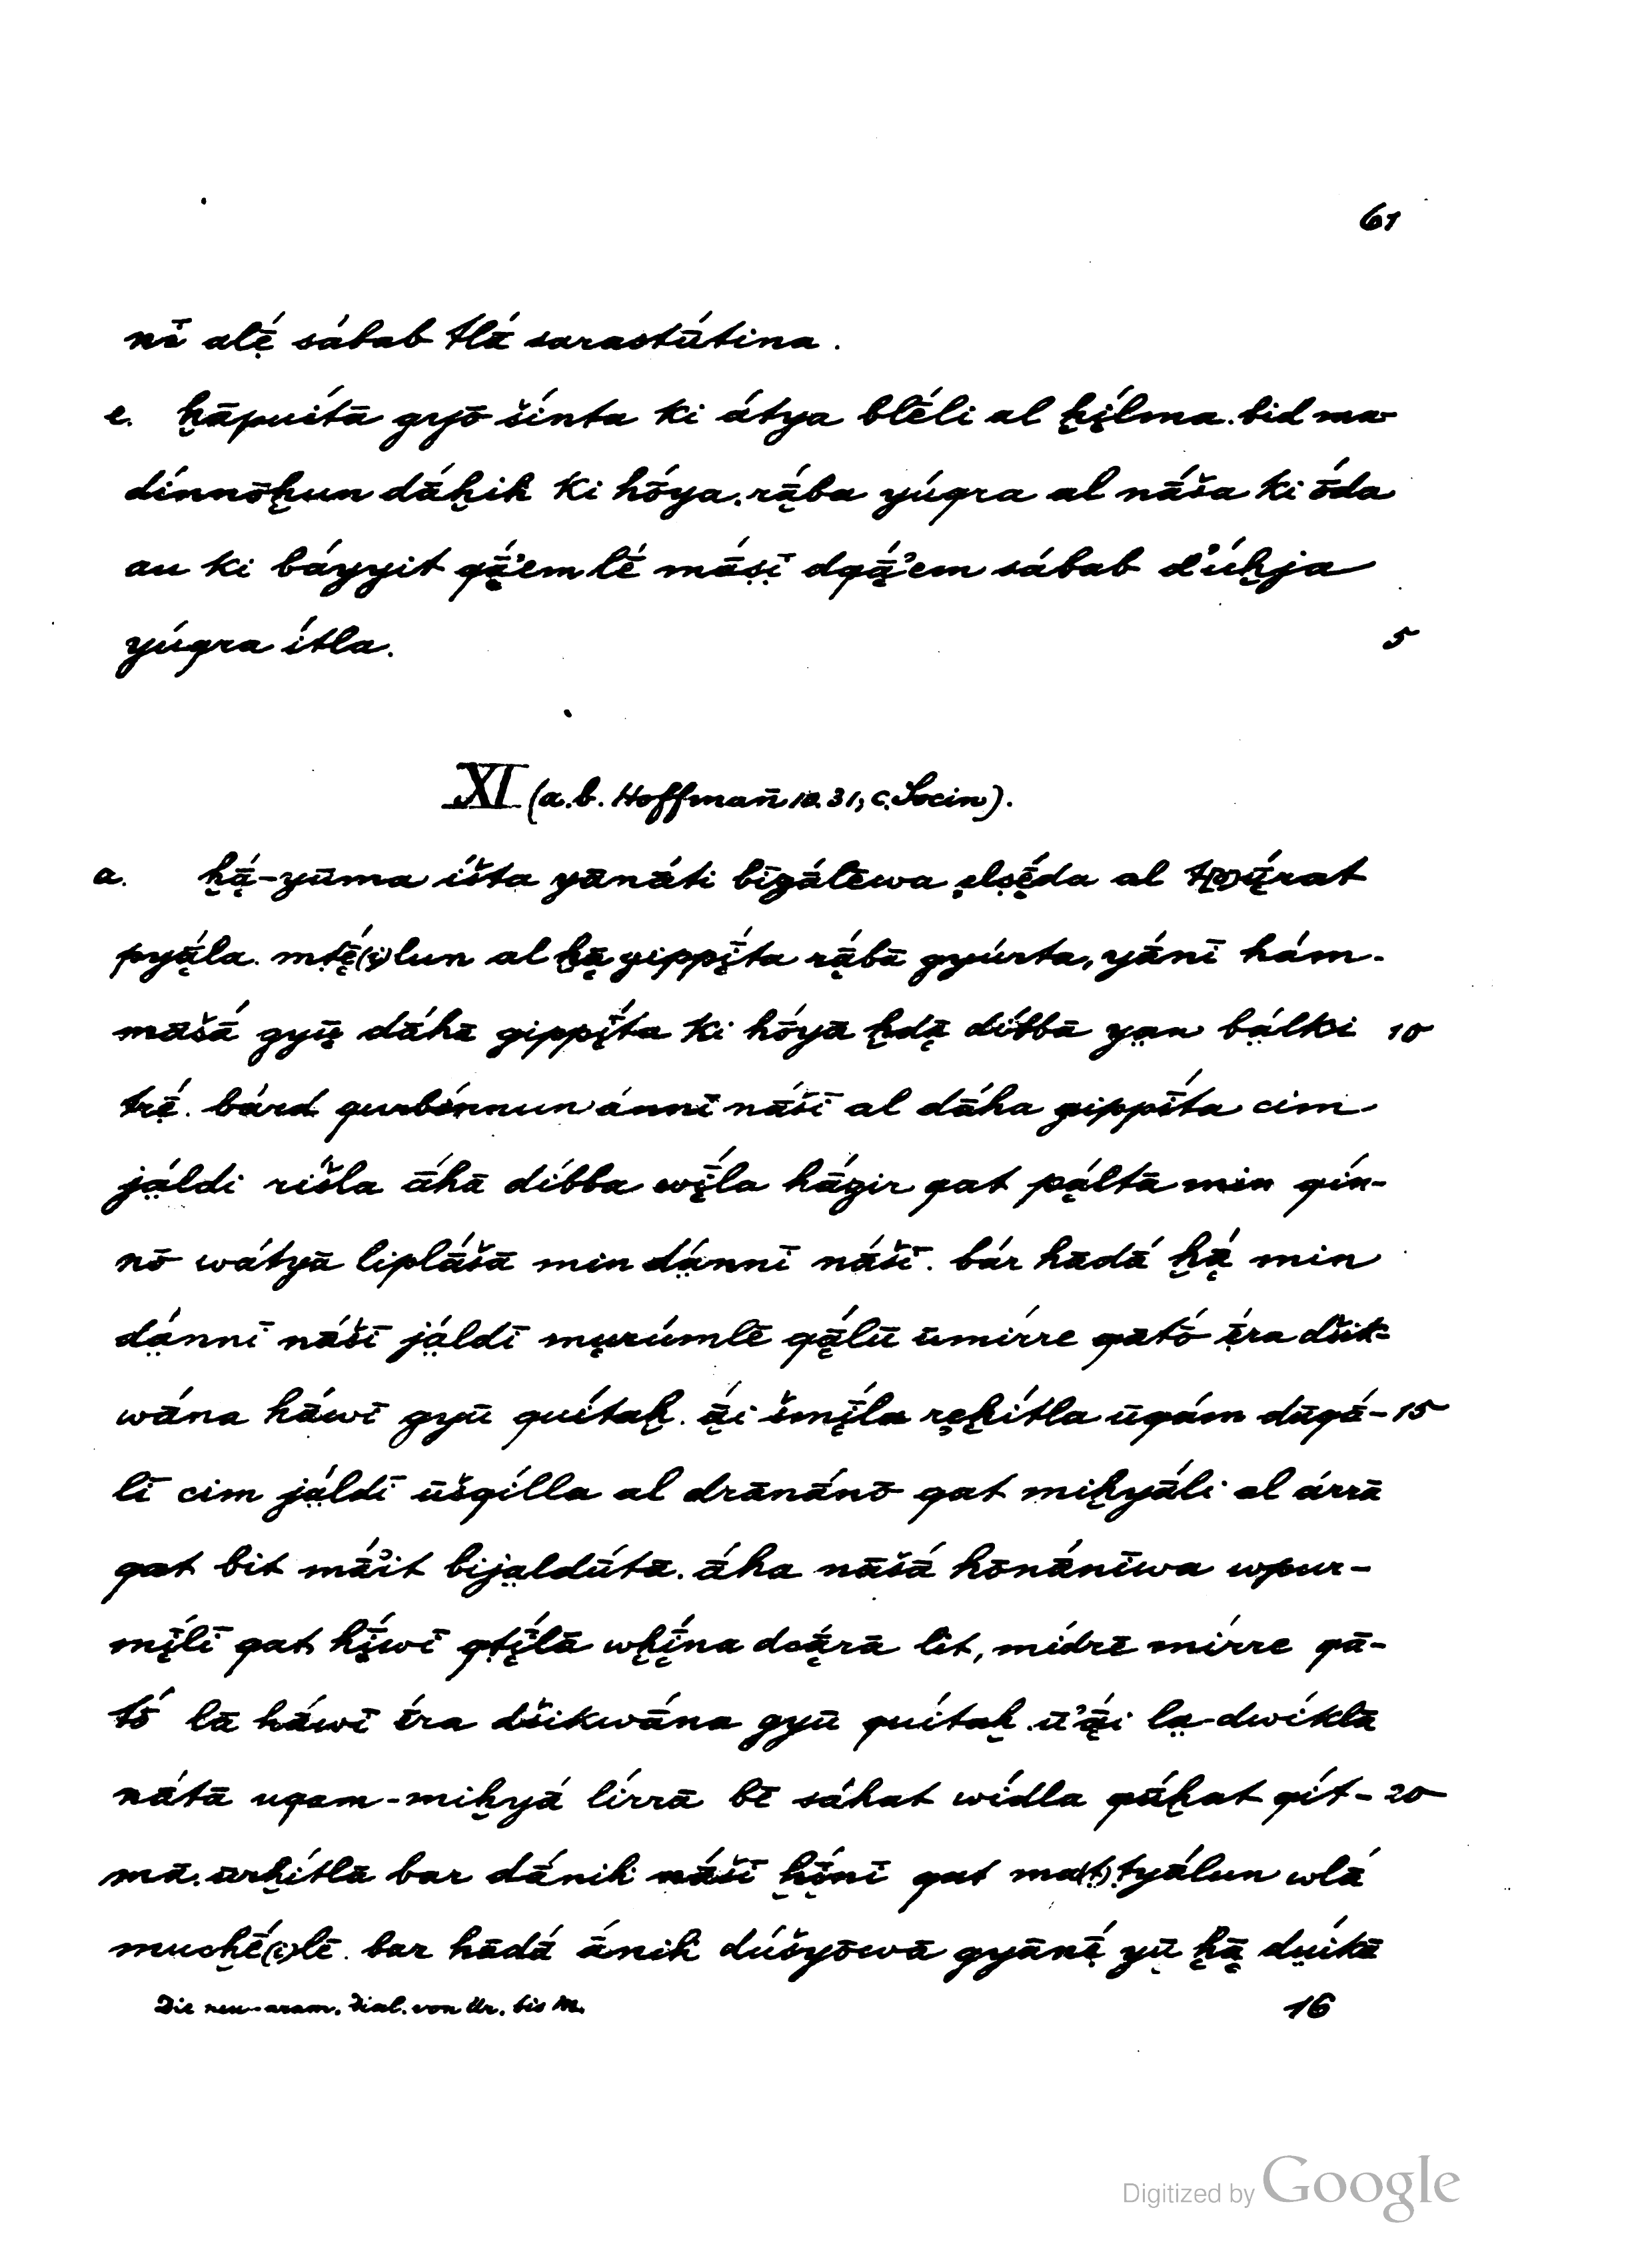 61
nī alẹ̄́ sábab tlā́ sarastū́tina.
e. ḫāpuítā gyṓ šínta ki átya blḗli al ḫị́lma. bid ma-
dínnōḫun dā́ḫih ki hṓya. rạ̄́ba yúqra al nā́ša ki ṓda
au ki báyyit qạ̄́'emlē mā́ṣī dqạ̄́'em sábab d'úḫja
yúqra ítla. 5
XI (a. b. Hoffman̄ 10. 31, c. Socin).
a. ḫạ̄́-yūma íšta yānā́ti bīzā́lēwa ẹlṣẹ̄́da al ṭ(p)ụ̄́rat
pyạ̄́la. mṭẹ̄́(i)lun al ḫạ̄ gippị̄́ta rạ̄́bā gyúrta, yā́nī hám-
māšā́ gyụ̄ dā́hā gippị̄́ta ki hṓyā ḫdạ̄ díbbā yạn bạ́lki 10
trẹ̄́. bárd qurbénnun ánnī nā́šī al dā́ha gippī́ta cim
jạ́ldi ríšla ā́hā díbba wị̄́la hā́zir qat pạ́ltā min qín-
nō wátyā liplā́šā min dạ́nnī nā́šī. bár hādā́ ḫạ̄́ min
dạ́nnī nā́šī jạ́ldī mụrúmlē qạ̄́lū ūmírre qātṓ ẹ̄́ra dšik-
wā́na hā́wī gyū quítaḫ. ạ̄́i šmị̄́la rẹḫítla ūqám dūqā́- 15
lī cim jạ́ldī ūšqílla al drānā́nō qat miḫyā́li al árrā
qat bit mā́'it bijạldū́tā. ā́ha nāšā́ hōnā́nīwa wpur-
mị̄́lī qat hị̄́wī qṭị̄́lā wḫị̄́na dcạ̄́rā lit, mídrē mírre qā-
tṓ lā hā́wī ẹ̄́ra dšikwā́na gyū quítaḫ. ū'ạ̄́i lạ-dwíklā
nā́tā uqam-miḫyā́ lírrā bē sā́hat wídla qā́ḫat qít- 20
mā. ūrḫítlā bar dā́nih nā́šī ḫị̄́nī qat ma(ṭ)ṭyā́lun wlā́
muchẹ̄́(i)lē. bar hādā́ ā́nih dúšyōwā gyānẹ̄́ yụ̄ ḫạ̄ dụíkā
Die neu-aram. Dial. von Ur. bis M. 16
Digitized by Google